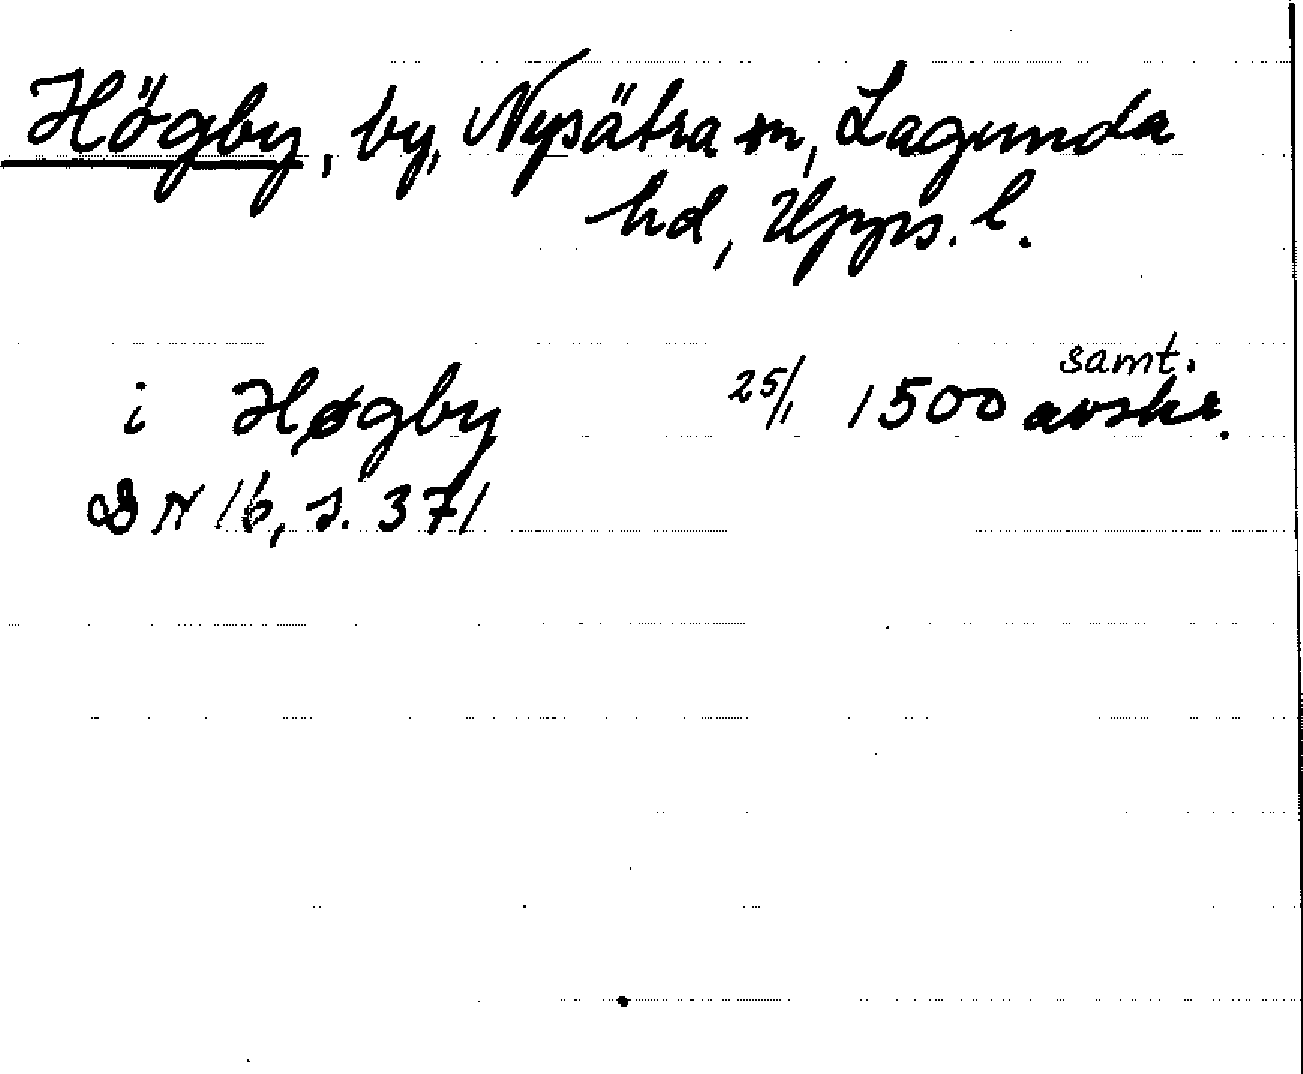 Högby, by, Nysätra sn, Lagunda
hd, Upps. l.
i Høgby 25/1 1500 samt. avskr.
DN 16, s. 371